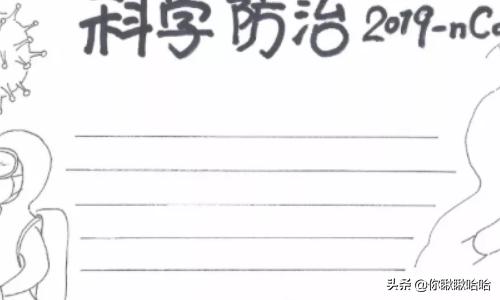 科学防治 2019-nCo
头条 @你瞅瞅哈哈